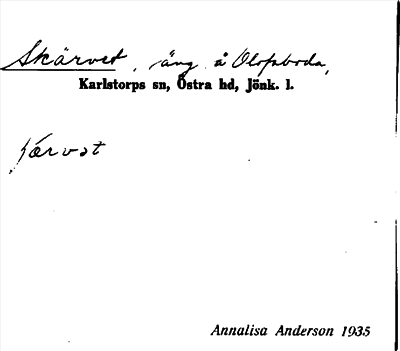 Skärvet, äng å Olofsboda,
Karlstorps sn, Östra hd, Jönk. l.
Annalisa Anderson 1935